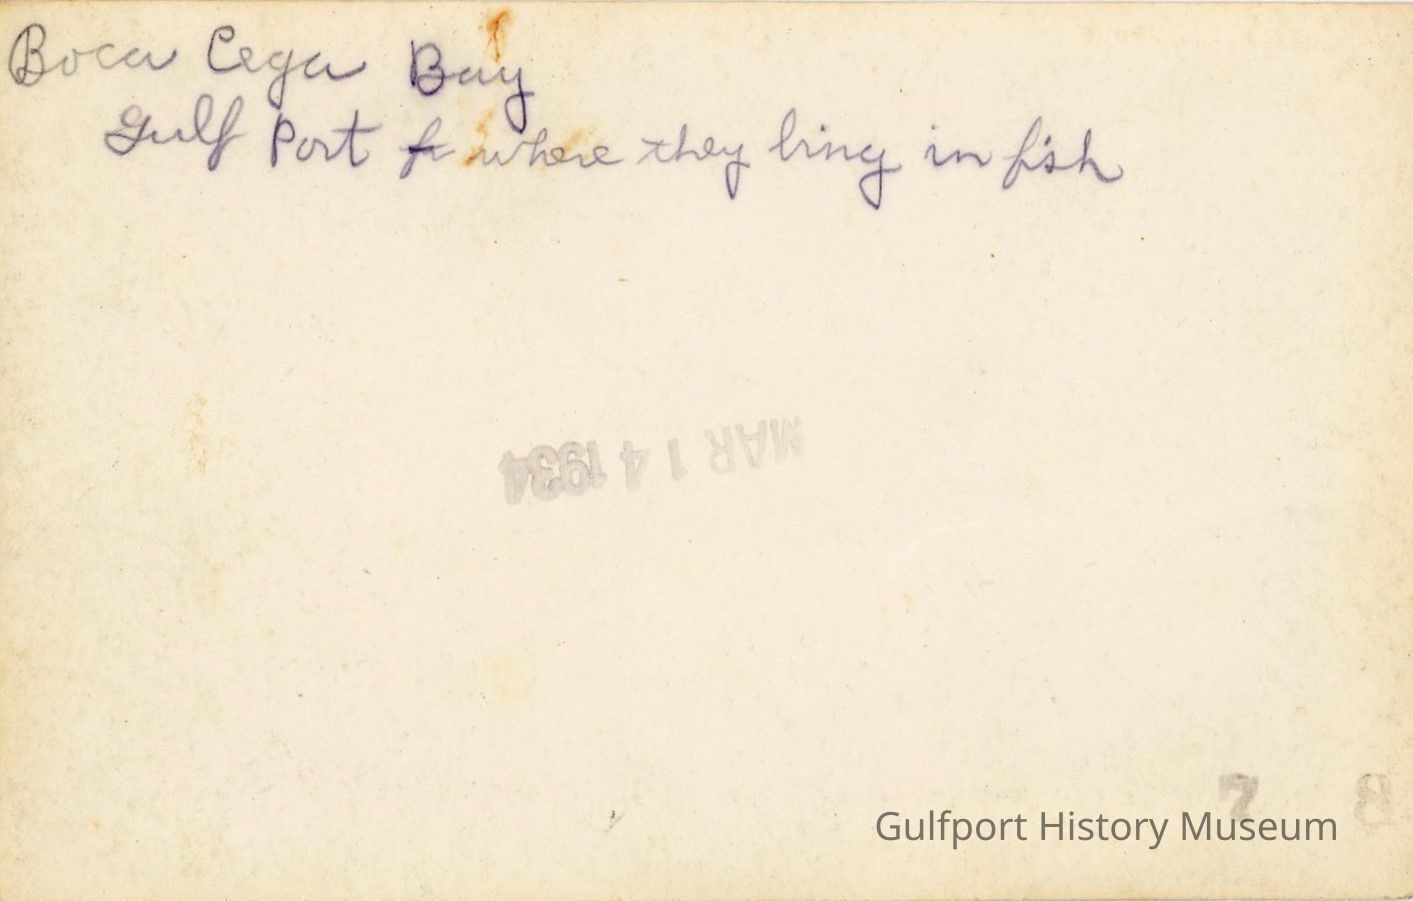 Boca Cega Bay
Gulf Port fr where they bring in fish
MAR 14 1934
7 B
Gulfport History Museum